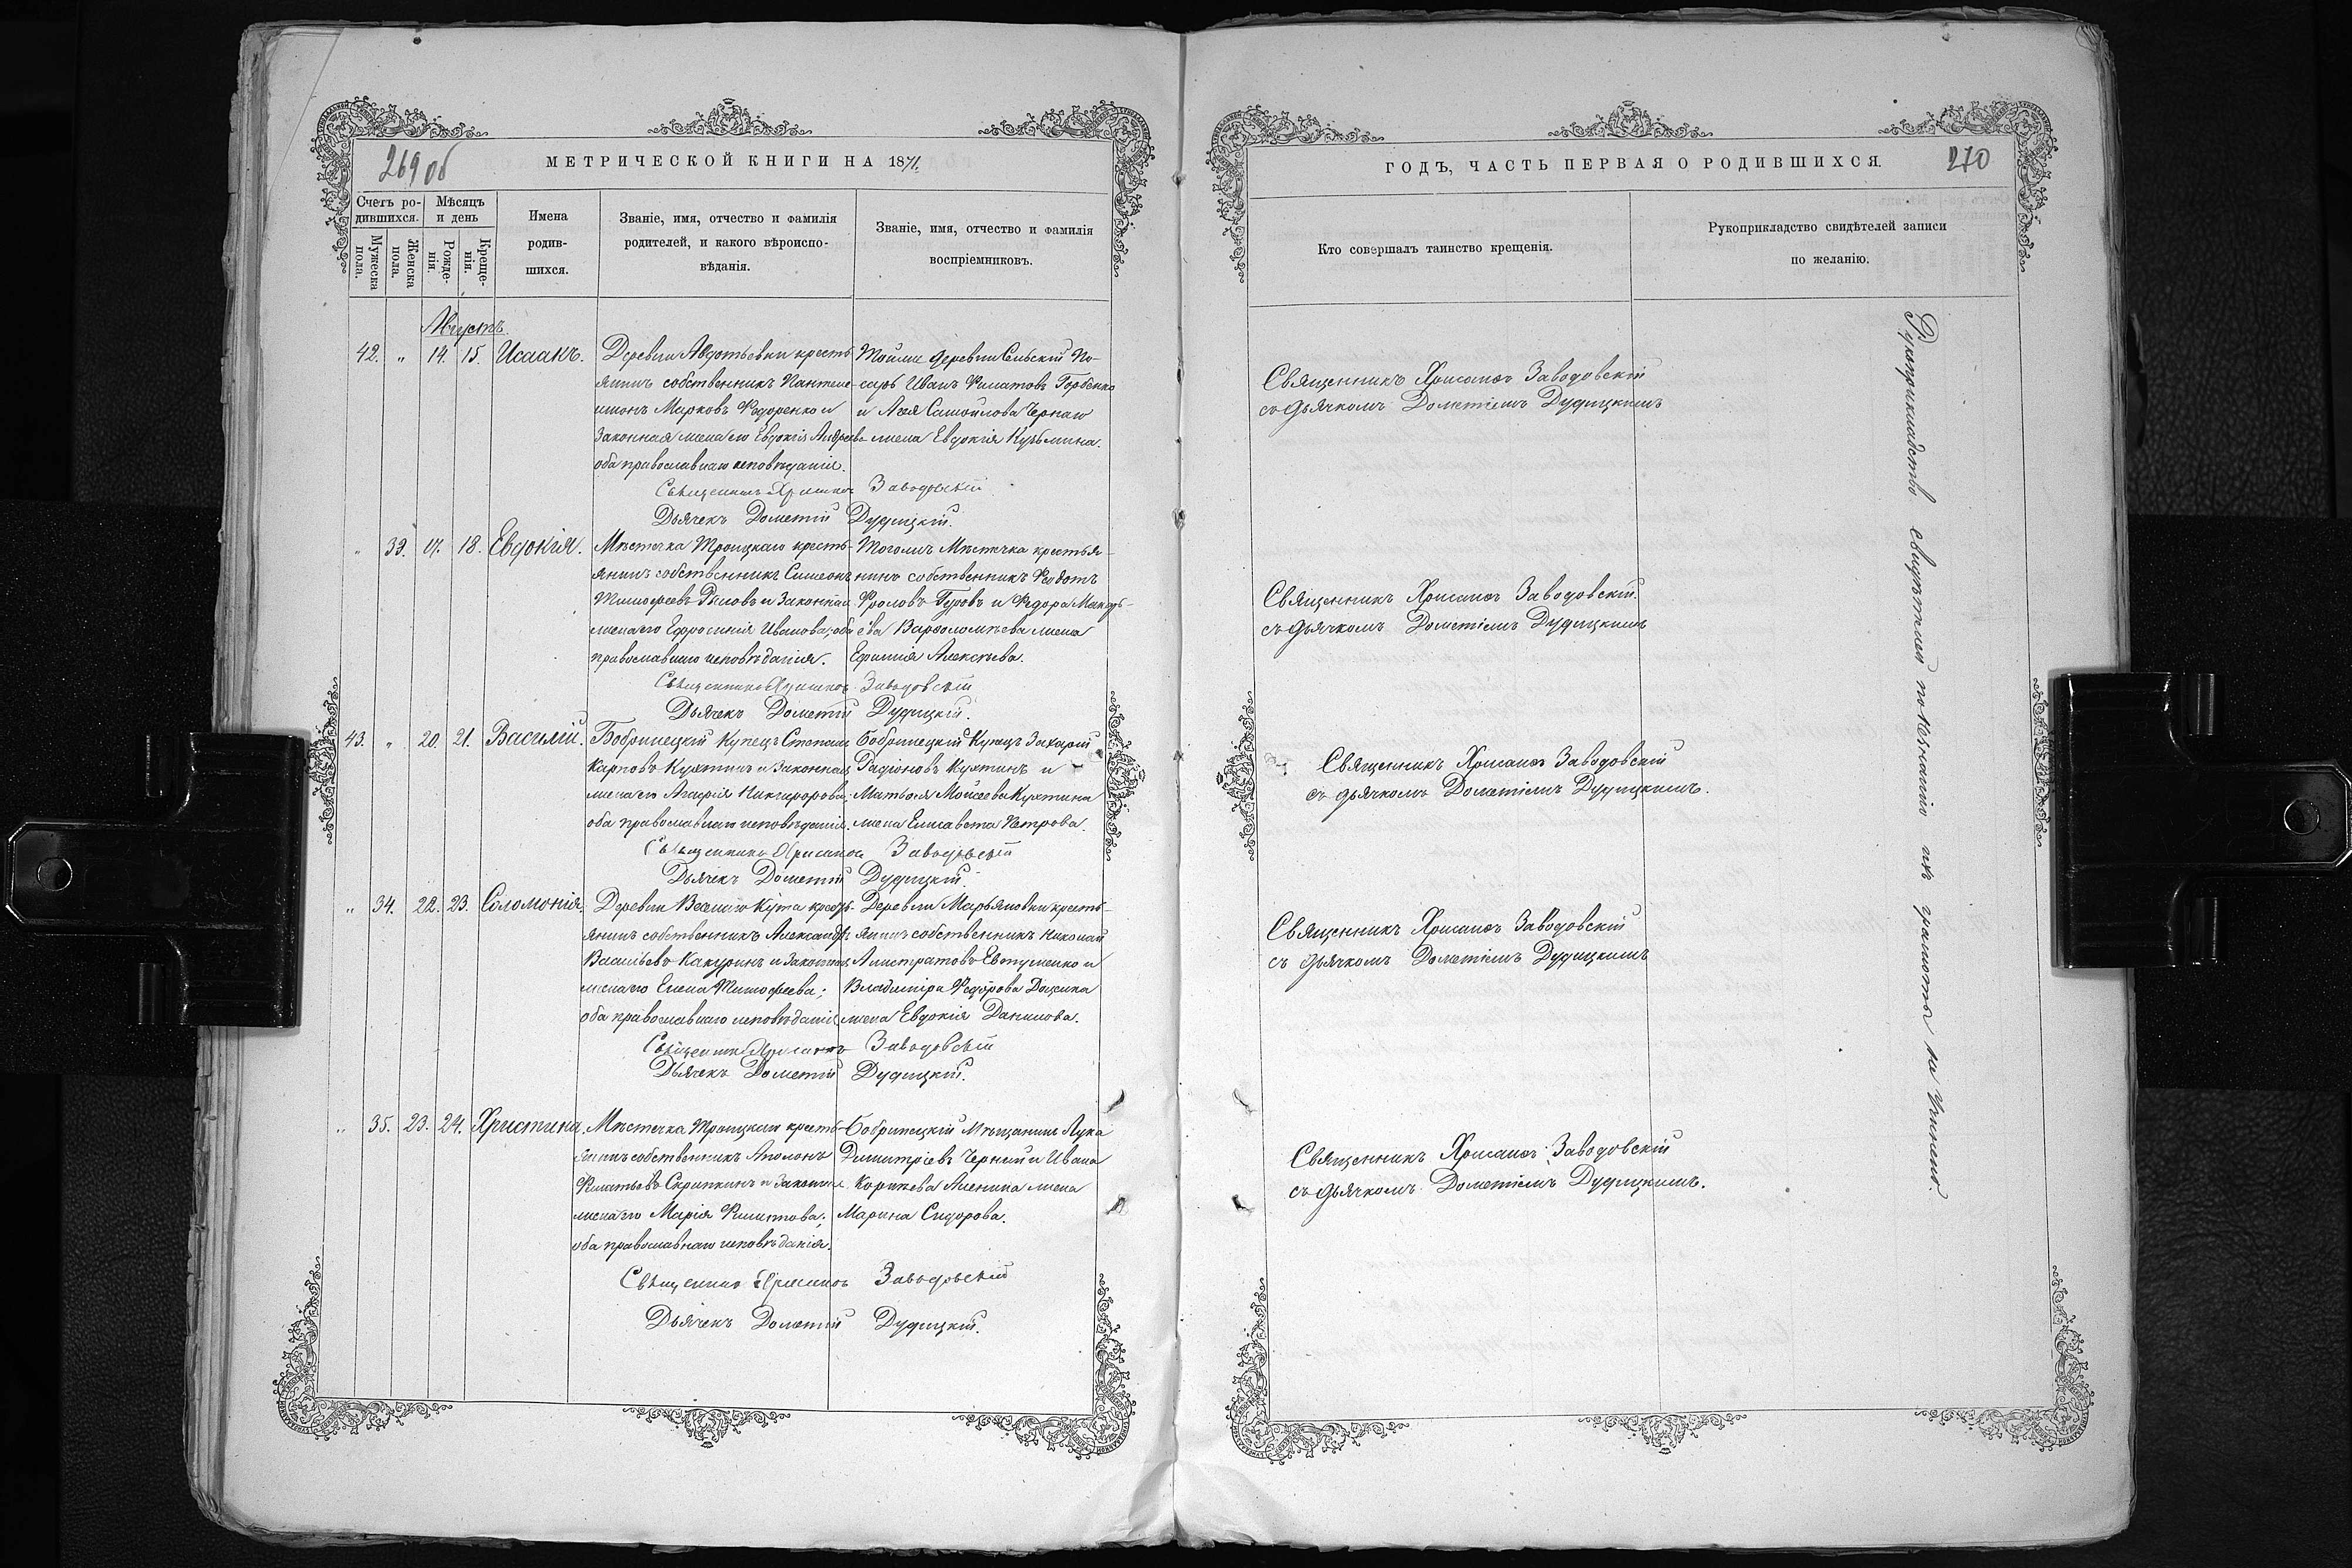 269 об
МЕТРИЧЕСКОЙ КНИГИ НА 1871.
Счетъ ро-
дившихся.
Мѣсяцъ
и день
Мужеска
пола.
Женска
пола.
Рожде-
нія.
Креще-
нія.
Имена
родив-
шихся.
Званіе, имя, отчество и фамилія
родителей, и какого вѣроиспо-
вѣданія.
Званіе, имя, отчество и фамилія
воспріемниковъ.
Августъ.
42. " 14. 15. Исаакъ.
Деревни Авдотьевки кресть-
янинъ собственникъ Пантеле-
имонъ Марковъ Федоренко и
Законная жена его Евдокія Андреева
оба православнаго исповѣданія.
Тойже деревни Сельскій Пи-
сарь Иванъ Филатовъ Горбенко
и Самойлова Чернаго
жена Евдокія Кузьмина.
Священникъ Хрисанѳъ Заводовскій
Дьячекъ Дометій Дудицкій.
" 33. 17. 18. Евдокія.
Мѣстечка Троицкаго кресть-
янинъ собственникъ Симеонъ
Тимофеевъ и Законная
жена его Ефросинія Иванова, оба
православнаго исповѣданія.
Тогожъ Мѣстечка крестья-
нинъ собственникъ Федотъ
Фроловъ Гуровъ и Федора
Варѳоломѣева жена
Ефимія Алексѣева.
Священникъ Хрисанѳъ Заводовскій
Дьячекъ Дометій Дудицкій.
43. " 20. 21. Василій.
Бобринецкій Купецъ Степанъ
Карповъ Кухтинъ и Законная
жена его Агафія Никифорова;
оба православнаго исповѣданія.
Бобринецкій Купецъ Захарій
Радіоновъ Кухтинъ и
Матвѣя Мойсеева Кухтина
жена Елисавета Петрова.
Священникъ Хрисанѳъ Заводовскій
Дьячекъ Дометій Дудицкій.
" 34. 22. 23. Соломонія.
Деревни Веселаго Кута кресть-
янинъ собственникъ Александръ
Васильевъ Какуринъ и Законная
жена его Елена Тимофеева;
оба православнаго исповѣданія.
Деревни Марьяновки кресть-
янинъ собственникъ Николай
Алистратовъ Евтушенко и
Владиміра Федорова Доценка
жена Евдокія Данилова.
Священникъ Хрисанѳъ Заводовскій
Дьячекъ Дометій Дудицкій.
" 35. 23. 24. Христина.
Мѣстечка Троицкаго кресть-
янинъ собственникъ Аполонъ
Филатьевъ Скрипкинъ и Законная
жена его Марія Филиппова;
оба православнаго исповѣданія.
Бобринецкій Мѣщанинъ Лука
Димитріевъ Черный и Ивана
Корнѣева Аленина жена
Марина Сидорова.
Священникъ Хрисанѳъ Заводовскій
Дьячекъ Дометій Дудицкій.
ГОДЪ, ЧАСТЬ ПЕРВАЯ О РОДИВШИХСЯ.
270
Кто совершалъ таинство крещенія.
Рукоприкладство свидѣтелей записи
по желанію.
Священникъ Хрисанѳъ Заводовскій
съ дьячкомъ Дометіемъ Дудицкимъ
Священникъ Хрисанѳъ Заводовскій.
съ дьячкомъ Дометіемъ Дудицкимъ
Священникъ Хрисанѳъ Заводовскій
съ дьячкомъ Дометіемъ Дудицкимъ.
Священникъ Хрисанѳъ Заводовскій
съ дьячкомъ Дометіемъ Дудицкимъ
Священникъ Хрисанѳъ Заводовскій
съ дьячкомъ Дометіемъ Дудицкимъ.
Рукоприкладство свидѣтелей по незнанію ихъ грамоты не учинено.